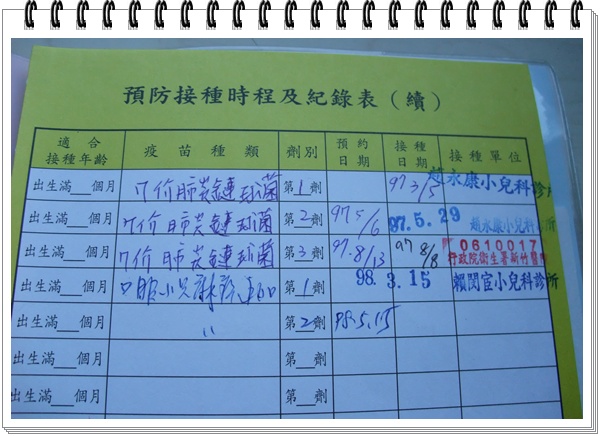 預防接種時程及紀錄表（續）
適合接種年齡 疫苗種類 劑別 預約日期 接種日期 接種單位
出生滿__個月 7价肺炎鏈球菌 第1劑 97 3/5 趙永康小兒科診所
出生滿__個月 7价肺炎鏈球菌 第2劑 97 5/6 97.5.29 趙永康小兒科診所
出生滿__個月 7价肺炎鏈球菌 第3劑 97.8/13 97 8/8 0610017 行政院衛生署新竹醫院
出生滿__個月 口服小兒麻 第1劑 98. 3.15 賴閔宦小兒科診所
出生滿__個月 〃 第2劑 98.5.15
出生滿__個月 第__劑
出生滿__個月 第__劑